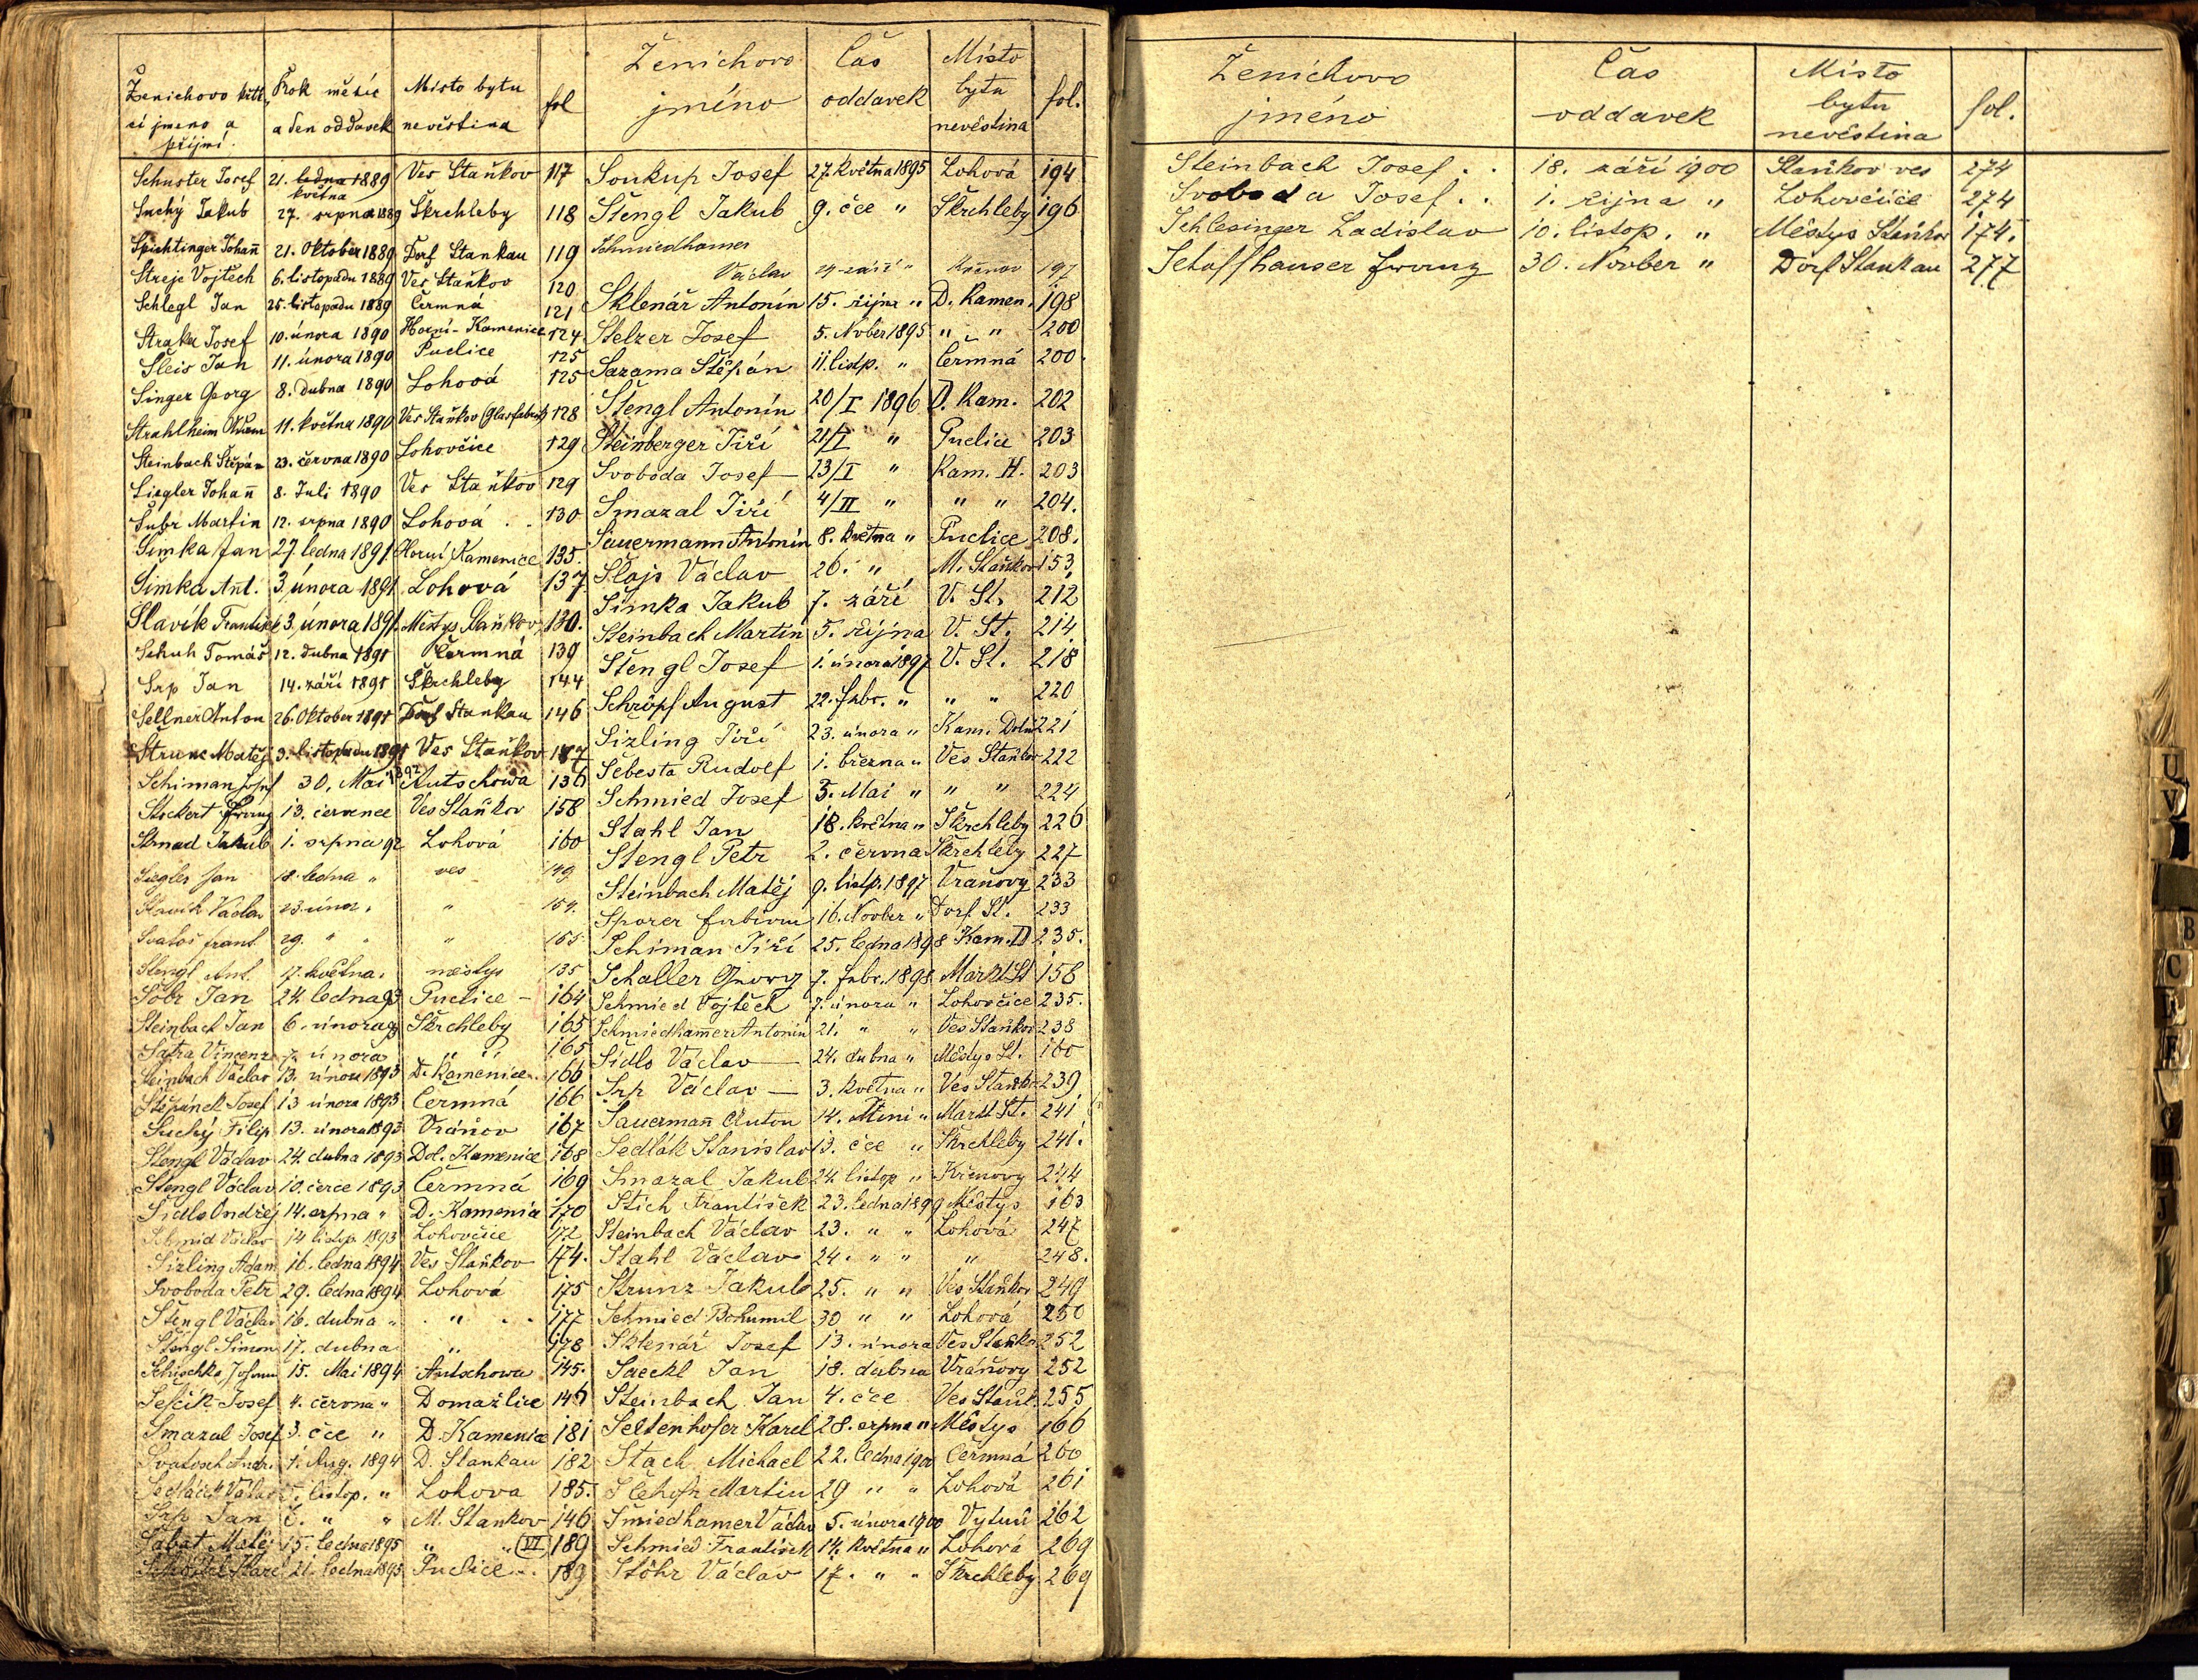 Ženichovo křtt, Rok měsíc Místo bytu fol
cí jmeno a a den oddavek nevěstina
příjmí.
Schuster Josef 21. ledna 1889 Ves Staňkov 117
května
Suchý Jakub 27. srpna 1889 Škrchleby 118
Spichtinger Johan̄ 21. Oktober 1889 Dorf Stankau 119
Streje Vojtěch 6. listopadu 1889 Ves Staňkov 120
Schlegl Jan 25. listopadu 1889 Čermná 121
Straka Josef 10. února 1890 Horní-Kamenice 124
Šleis Jan 11. února 1890 Puclice 125
Singer Georg 8. dubna 1890 Lohová 125
Strahlheim 11. května 1890 Ves Staňkov (Glasfabrik) 128
Steinbach Štěpán 23. června 1890 Lohovčice 129
Siegler Johan̄ 8. Juli 1890 Ves Staňkov 129
Šubr Martin 12. srpna 1890 Lohová . . 130
Šimka Jan 27 ledna 1891 Horní Kamenice 135.
Šimka Ant. 3 února 1891 Lohová 137.
Slavík Frantisek 3 února 1891. Městys Staňkov, 130.
Schuh Tomáš 12. dubna 1891 Čermná 139
Srp Jan 14. září 1891 Škrchleby 144
Sellner Anton 26. Oktober 1891 Dorf Stankau 146
Strunc Matěj 3. listopadu 1891 Ves Staňkov 147
Schiman Josef 30. Mai 1892 Autschowa 136
Stockert Franz 13. července Ves Staňkov 158
Strnad Jakub 1. srpna 92 Lohová 160
Siegler Jan 18. ledna " ves 149
Slavík Václav 23. únor. " 154.
Svatoš frant. 29. " " " 155
Stengl Ant. 17. května. městys 135
Šobr Jan 24. ledna 93 Puclice - 164
Steinbach Jan 6. února 93 Škrchleby 165
Šafra Vincenz 7. února " " 165
Steinbach Václav 13. února 1893 D. Kamenice.. 166
Štěpánek Josef 13 února 1893 Čermná 166
Suchý Filip 13. února 1893 Vránov 167
Stengl Václav 24. dubna 1893 Dol. Kamenice 168
Štengl Václav 10. čerce 1893 Čermná 169
Šidlo Ondřej 14. srpna " D. Kamenice 170
Schmid Václav 14 listop. 1893 Lohovčice 172
Sizling Adam 16. ledna 1894 Ves Staňkov 174.
Svoboda Petr 29. ledna 1894 Lohová 175
Štengl Václav 16. dubna " . " . . 177
Štengl Šimon 17. dubna " 178
Schischka Johann 15. Mai 1894 Autschowa 145.
Šefčík Josef 4. června " Domažlice 146
Smazal Josef 3. čce " D. Kamenice 181
Svatosch Andr. 1. Aug. 1894 D. Stankau 182
Sedláček Václav listop. " Lohova 185.
Srp Jan 6. " " M. Stankov 146
Šabat Matěj 15. ledna 1895 " " (VI) 189
Karel 21. ledna 1895 Puclice.. 189
Ženichovo Čas Místo
jméno oddavek bytu fol.
nevěstina
Soukup Josef 27. května 1895 Lohová 194
Štengl Jakub 9. čce " Škrchleby 196
Schmiedhamer
Václav 24. září " Křenov 197
Sklenář Antonín 15. října " D. Kamen. 198
Stelzer Josef 5. Nvber 1895 " " 200
Sazama Štěpán 11. listp. " Čermná 200.
Štengl Antonín 20/I 1896 D. Kam. 202
Steinberger Jiří 21/I " Puclice 203
Svoboda Josef 23/I " Kam. H. 203
Smazal Jiří 4/II " " " 204.
Sauermann Antonín 8. května " Puclice 208.
Šlajs Václav 26. " M. Staňkov 153
Šimka Jakub 7. září V. St. 212
Steinbach Martin 5. října V. St. 214
Štengl Josef 1. února 1897 V. St. 218
Schröpf August 22. febr. " " " 220
Sizling Jiří 23. února " Kam. Dolní 221
Šebesta Rudolf 1. března " Ves Staňkov 222
Schmied Josef 3. Mai " " " 224
Stahl Jan 18. května " Škrchleby 226
Stengl Petr 2. června Škrchleby 227
Steinbach Matěj 9. listp. 1897 Vraňovy 233
Sporer Fabian 16. Novber " Dorf St. 233
Schiman Jiří 25. ledna 1898 Kam. D 235.
Schaller Georg 7. febr. 1898 Markt St 158
Schmied Vojtěch 7. února " Lohovčice 235.
Schmiedham̄er Antonín 21. " " Ves Staňkov 238
Šidlo Václav 24. dubna " Městys St. 160
Srp Václav 3. května " Ves Staňkov 239
Sauerman̄ Anton 14. Juni " Markt St. 241
Sedlák Stanislav 13. čce " Škrchleby 241.
Smazal Jakub 24. listop " Křenovy 244
Štich František 23. ledna 1899 Městys 163
Steinbach Václav 23. " " Lohová 247
Stahl Václav 24. " " " 248.
Strunz Jakub 25. " " Ves Staňkov 249
Schmied Bohumil 30 " " Lohová 250
Sklenář Josef 13. února Ves Staňkov 252
Saeckl Jan 18. dubna Vráňovy 252
Steinbach Jan 4. čce Ves Staňk. 255
Seltenhofer Karel 28. srpna " Městys 166
Stach Michael 22. ledna 1900 Čermná 260
Martin 29 " " Lohová 261
Šmiedhamer Václav 5. února 1900 Vytuň 262
Schmied František 14. května " Lohová 269
Stöhr Václav 17. " " Škrchleby 269
Ženichovo Čas Místo
jméno oddavek bytu fol.
nevěstina
Steinbach Josef . . 18. září 1900 Staňkov ves 274
Svoboda Josef . . 1. října " Lohovčice 274
Schlesinger Ladislav 10. listop. " Městys Staňkov 174.
Schaffhauser Franz 30. Novber " Dorf Stankau 277
U
V
B
C
E
F
G
J